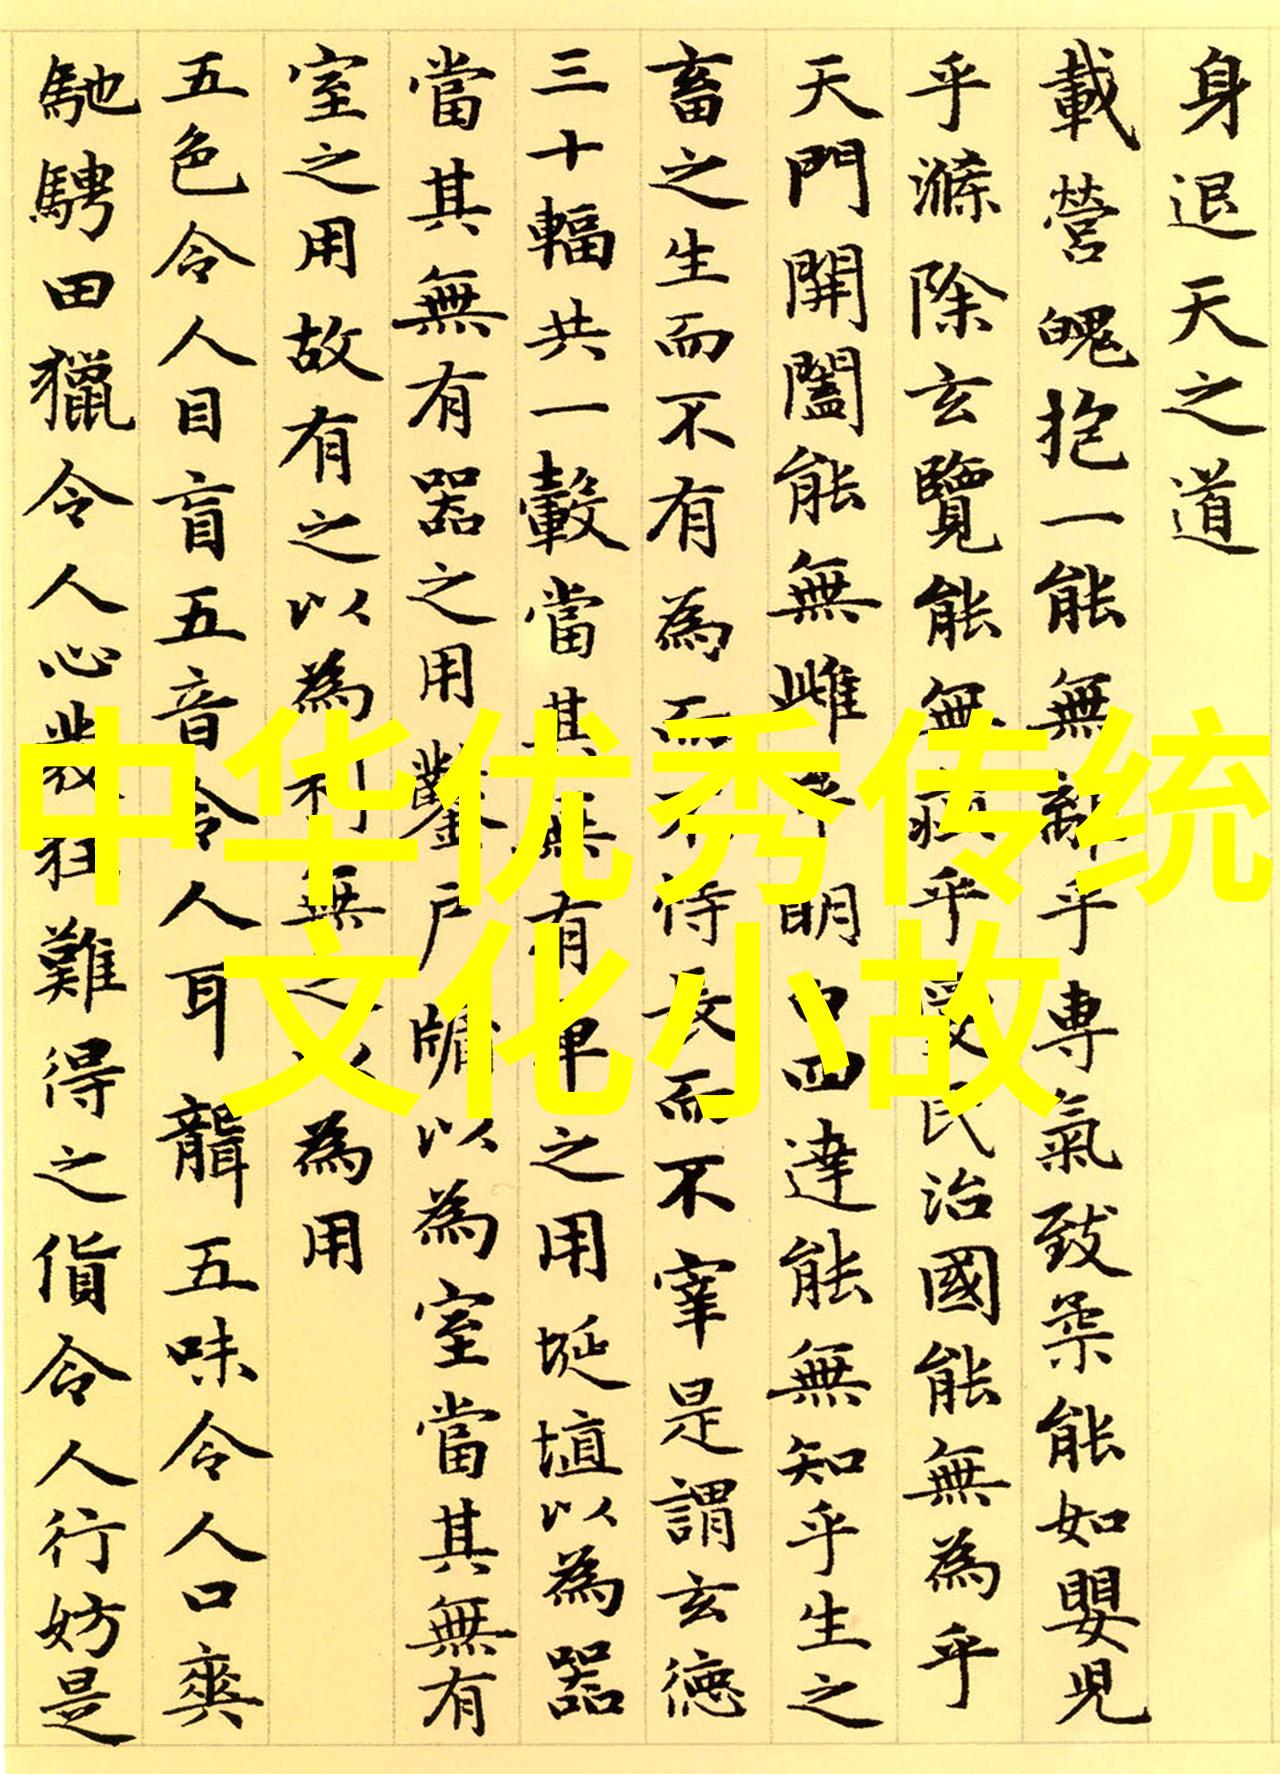 身退天之道
載營魄抱一能無離乎專氣致柔能如嬰兒
乎滌除玄覽能無疵乎愛民治國能無為乎
天門開闔能無雌乎明白四達能無知乎生之
畜之生而不有為而不恃長而不宰是謂玄德
三十輻共一轂當其無有車之用埏埴以為器
當其無有器之用鑿戶牖以為室當其無有
室之用故有之以為利無之以為用
五色令人目盲五音令人耳聾五味令人口爽
馳騁田獵令人心發狂難得之貨令人行妨是
中华优秀传统
文化小故